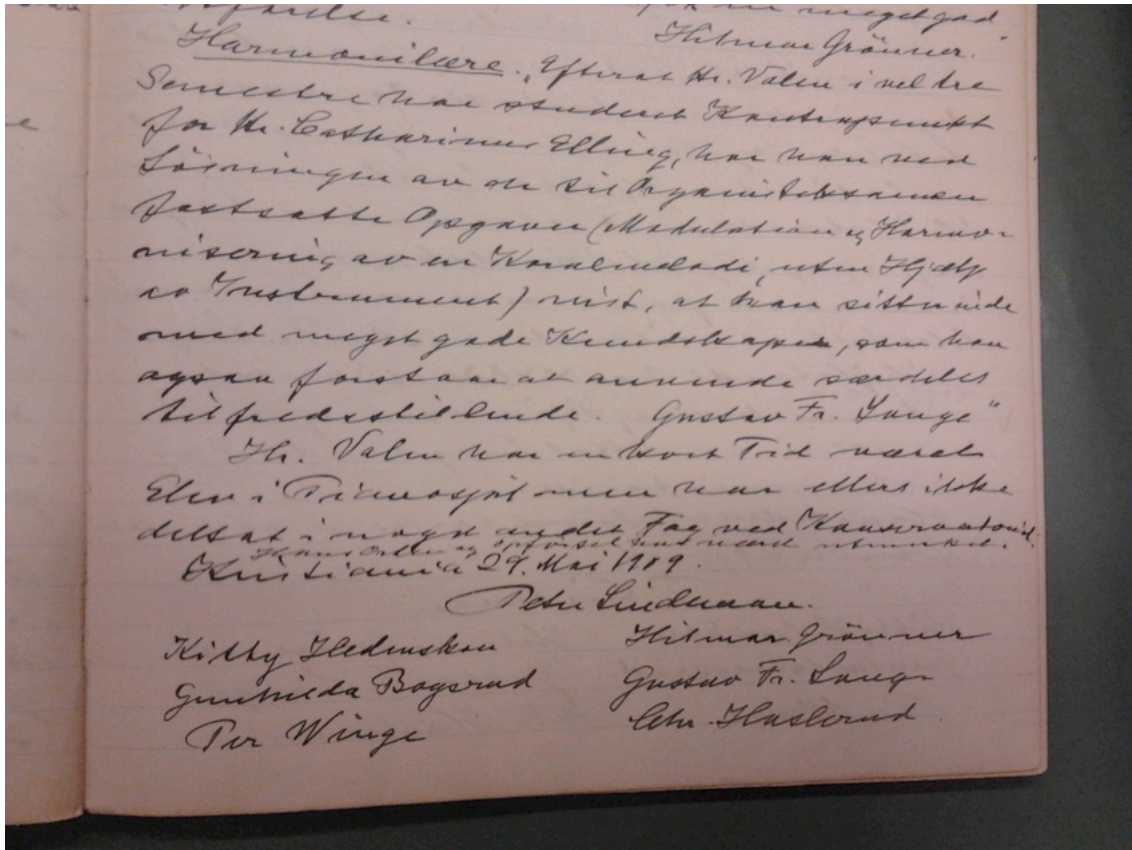 meget god"
Hilmar Grönner.
Harmonilære. "Efterat Hr. Valen i vel tre
Semestre har studeret Kontrapunkt
for Hr. Catharinus Elling, har han ved
Løsningen av de til Organisteksamen
fastsatte Opgaver (Modulation og Harmo-
nisering av en Koralmelodi, uten Hjælp
av Instrument) vist, at han sitter inde
med meget gode Kundskaper, som han
ogsaa forstaar at anvende særdeles
tilfredsstillende. Gustav Fr. Lange"
Hr. Valen har en kort Tid været
Elev i Pianospil men har ellers ikke
deltat i noget andet Fag ved Konservatoriet.
Hans Orden og Opførsel har været utmerket.
Kristiania 29. Mai 1909.
Peter Lindeman.
Kitty Hilmar Grönner
Gunhilda Bogsrud Gustav Fr. Lange
Per Winge Chr. Haslerud